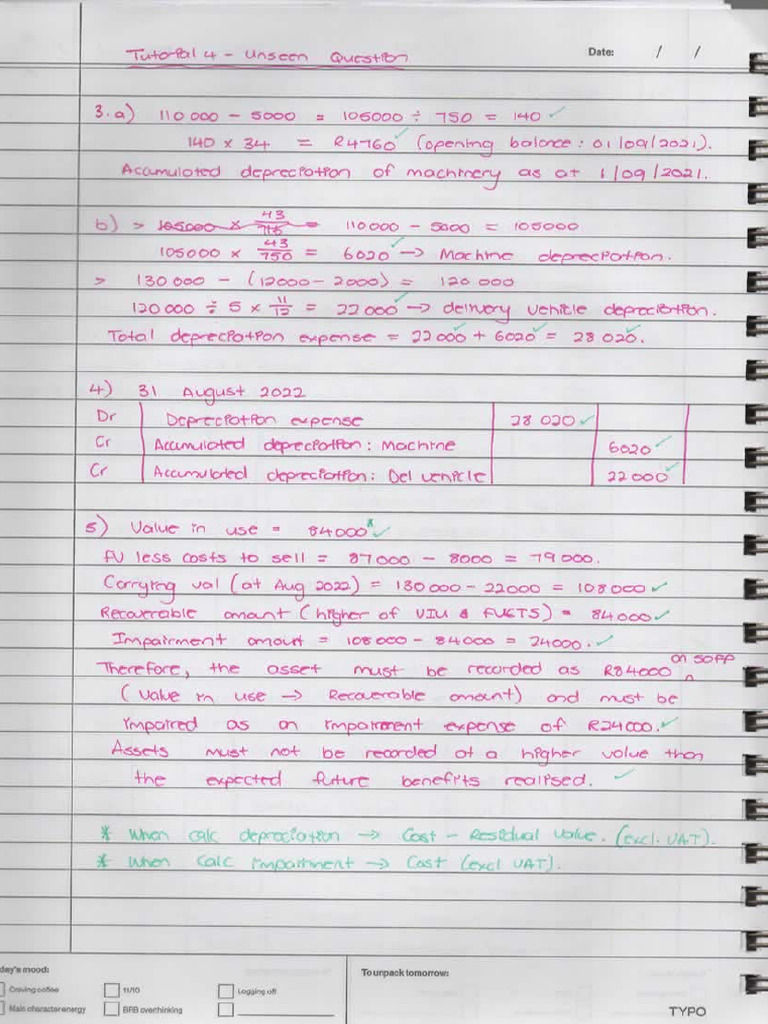 Tutorial 4 - Unseen Question
Date: / /
3.a) 110 000 - 5000 = 105000 ÷ 750 = 140 ✓
140 x 34 = R4760 ✓ (opening balance: 01/09/2021).
Accumulated depreciation of machinery as at 1/09/2021.
b) > 105000 x 43/715 = 110000 - 5000 = 105000
105000 x 43/750 = 6020 ✓ → Machine depreciation.
> 130 000 - (12000 - 2000) = 120 000
120 000 ÷ 5 x 11/12 = 22 000 ✓ → delivery vehicle depreciation.
Total depreciation expense = 22 000 ✓ + 6020 ✓ = 28 020 ✓.
4) 31 August 2022
Dr Depreciation expense 28 020 ✓
Cr Accumulated depreciation: Machine 6020 ✓
Cr Accumulated depreciation: Del vehicle 22 000 ✓
5) Value in use = 84000 ✓
FV less costs to sell = 87000 - 8000 = 79 000.
Carrying val (at Aug 2022) = 130000 - 22000 = 108 000 ✓
Recoverable amount (higher of VIU & FVCTS) = 84000 ✓
Impairment amount = 108000 - 84000 = 24000. ✓
Therefore, the asset must be recorded as R84000 on SOFP
(value in use → Recoverable amount) and must be
impaired as an impairment expense of R24000. ✓
Assets must not be recorded at a higher value than
the expected future benefits realised. ✓
* When calc depreciation → Cost - Residual value. (excl. VAT).
* When calc impairment → Cost (excl VAT).
day's mood:
To unpack tomorrow:
Craving coffee
11/10
Logging off
Main character energy
BRB overthinking
TYPO